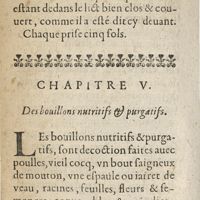 estant dedans le lict bien clos & cou-
uert, comme il a esté dit cy deuant.
Chaque prise cinq sols.
CHAPITRE V.
Des bouillons nutritifs & purgatifs.
LEs bouillons nutritifs & purga-
tifs, sont decoction faites auec
poulles, vieil cocq, vn bout saigneux
de mouton, vne espaule ou iarret de
veau, racines, feuilles, fleurs & se-